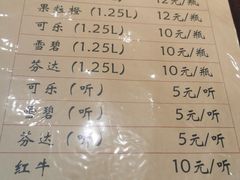 果粒橙（1.25L） 12元/瓶
可乐（1.25L） 10元/瓶
雪碧（1.25L） 10元/瓶
芬达（1.25L） 10元/瓶
可乐（听） 5元/听
雪碧（听） 5元/听
芬达（听） 5元/听
红牛 10元/听